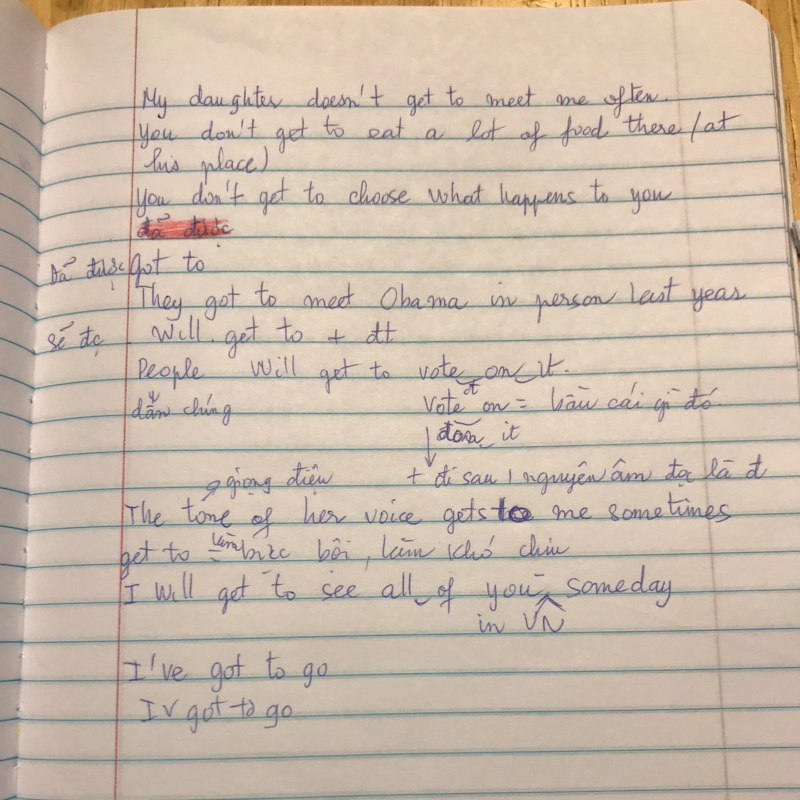 My daughter doesn't get to meet me often.
You don't get to eat a lot of food there (at
his place)
You don't get to choose what happens to you
đã được
Đã được got to
They got to meet Obama in person last year
sẽ đc Will get to + đt
People will get to vote on it.
dẫn chứng vote on = bầu cái gì đó
đt
it
giọng điệu + đi sau 1 nguyên âm đọc là đ
The tone of her voice gets to me sometimes
get to = làm bực bội, làm khó chịu
I will get to see all of you someday
in VN
I've got to go
IV got to go